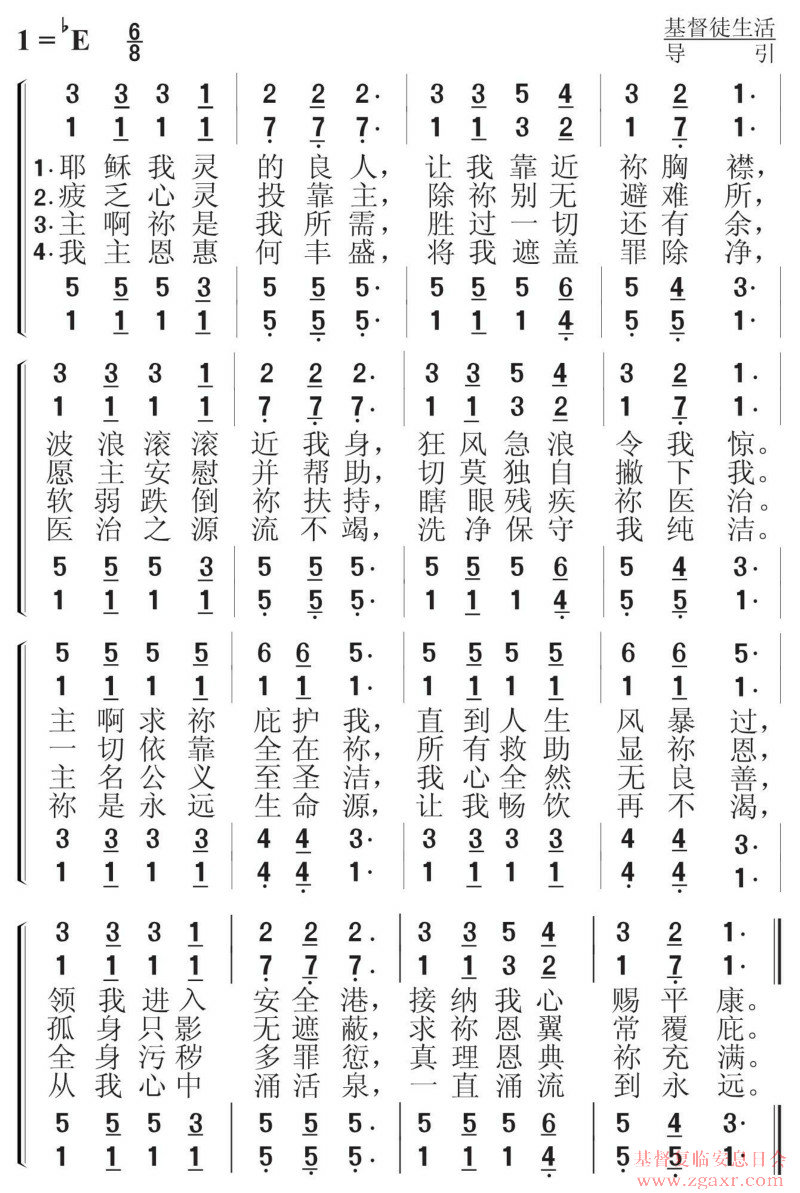 1=♭E 6/8 基督徒生活
导引
3 3 3 1 | 2 2 2· | 3 3 5 4 | 3 2 1·
1 1 1 1 | 7 7 7· | 1 1 3 2 | 1 7 1·
1.耶稣我灵的良人，让我靠近祢胸襟，
2.疲乏心灵投靠主，除祢别无避难所，
3.主啊祢是我所需，胜过一切还有余，
4.我主恩惠何丰盛，将我遮盖罪除净，
5 5 5 3 | 5 5 5· | 5 5 5 6 | 5 4 3·
1 1 1 1 | 5 5 5· | 1 1 1 4 | 5 5 1·
3 3 3 1 | 2 2 2· | 3 3 5 4 | 3 2 1·
1 1 1 1 | 7 7 7· | 1 1 3 2 | 1 7 1·
波浪滚滚近我身，狂风急浪令我惊。
愿主安慰并帮助，切莫独自撇下我。
软弱跌倒祢扶持，瞎眼残疾祢医治。
医治之源流不竭，洗净保守我纯洁。
5 5 5 3 | 5 5 5· | 5 5 5 6 | 5 4 3·
1 1 1 1 | 5 5 5· | 1 1 1 4 | 5 5 1·
5 5 5 5 | 6 6 5· | 5 5 5 5 | 6 6 5·
1 1 1 1 | 1 1 1· | 1 1 1 1 | 1 1 1·
主啊求祢庇护我，直到人生风暴过，
一切依靠全在祢，所有救助显祢恩，
主名公义至圣洁，我心全然无良善，
祢是永远生命源，让我畅饮再不渴，
3 3 3 3 | 4 4 3· | 3 3 3 3 | 4 4 3·
1 1 1 1 | 4 4 1· | 1 1 1 1 | 4 4 1·
3 3 3 1 | 2 2 2. | 3 3 5 4 | 3 2 1·
1 1 1 1 | 7 7 7· | 1 1 3 2 | 1 7 1·
领我进入安全港，接纳我心赐平康。
孤身只影无遮蔽，求祢恩翼常覆庇。
全身污秽多罪愆，真理恩典祢充满。
从我心中涌活泉，一直涌流到永远。
5 5 5 3 | 5 5 5· | 5 5 5 6 | 5 4 3·
1 1 1 1 | 5 5 5· | 1 1 1 4 | 5 5 1·
基督复临安息日会
www.zgaxr.com